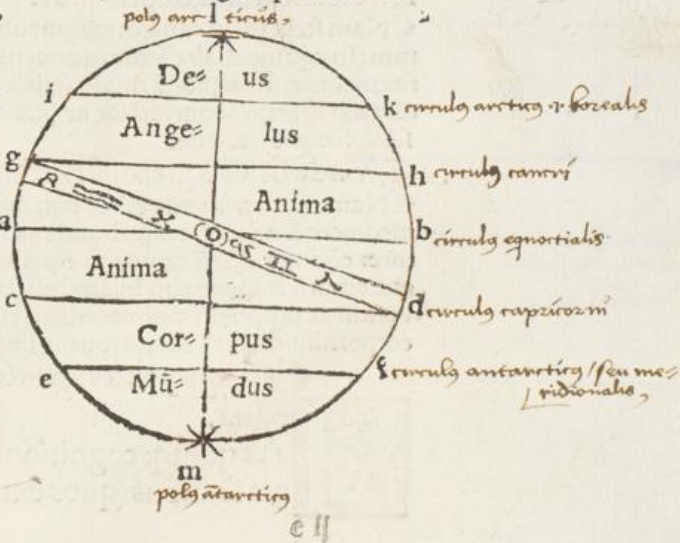 polꝰ arc l ticus.
De⸗ us
i k circulꝰ arcticꝰ ⁊ borealis
Ange⸗ lus
g h circulꝰ cancri
Anima
a (O) b circulꝰ equoctialis
Anima
c d circulꝰ capricorni
Cor⸗ pus
e f circulꝰ antarcticꝰ / seu me⸗
ridionalis,
Mū⸗ dus
m
polꝰ ātarcticꝰ